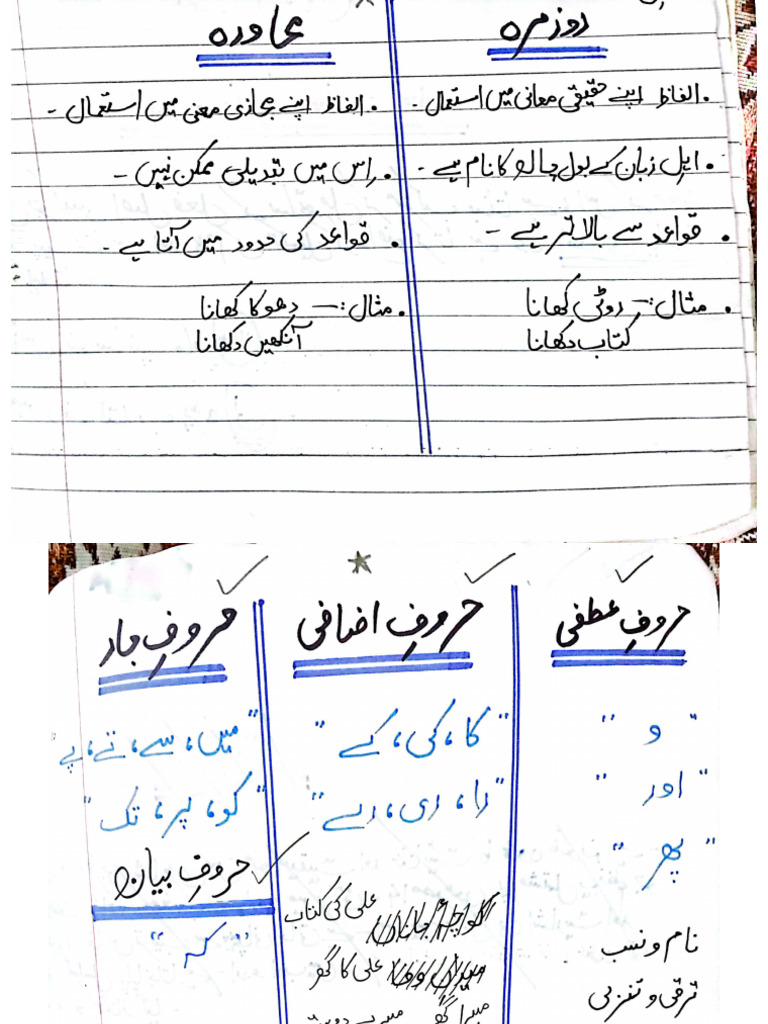 روزمرہ
محاورہ
. الفاظ اپنے حقیقی معانی میں استعمال -
. الفاظ اپنے مجازی معنی میں استعمال -
. اہلِ زبان کے بول چال کا نام ہے -
. اس میں تبدیلی ممکن نہیں -
. قواعد سے بالاتر ہے -
. قواعد کی حدود میں آتا ہے -
. مثال :— روٹی کھانا
کتاب دکھانا
. مثال :— دھوکا کھانا
آنکھیں دکھانا
حروفِ عطفی
حروفِ اضافی
حروفِ جار
" و "
" اور "
" پھر "
نام و نسب
ترقی و
" کا، کی، کے "
" را، ری، رے "
علی کی کتاب
علی کا گھر
میرا گھر
" میں، سے، تے، پے "
" کو، پر، تک "
حروفِ بیان
" کہ "